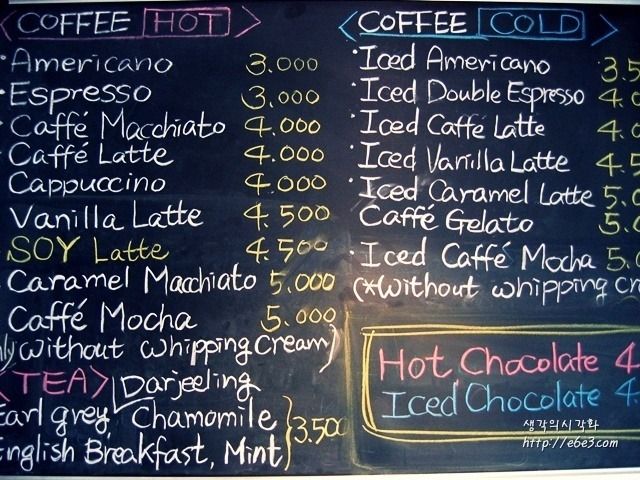 COFFEE HOT
Americano 3.000
Espresso 3.000
Caffé Macchiato 4.000
Caffé Latte 4.000
Cappuccino 4.000
Vanilla Latte 4.500
SOY Latte 4.500
Caramel Macchiato 5.000
Caffé Mocha 5.000
without whipping cream)
<TEA> Darjeeling
Earl grey, Chamomile
English Breakfast, Mint 3.500
COFFEE COLD
Iced Americano 3.5
Iced Double Espresso 4.0
Iced Caffé Latte 4.0
Iced Vanilla Latte 4.5
Iced Caramel Latte 5.0
Caffé Gelato 5.0
Iced Caffé Mocha 5.0
(*without whipping cr
Hot Chocolate 4.
Iced Chocolate 4.
생각의시각화
http://e6e3.com